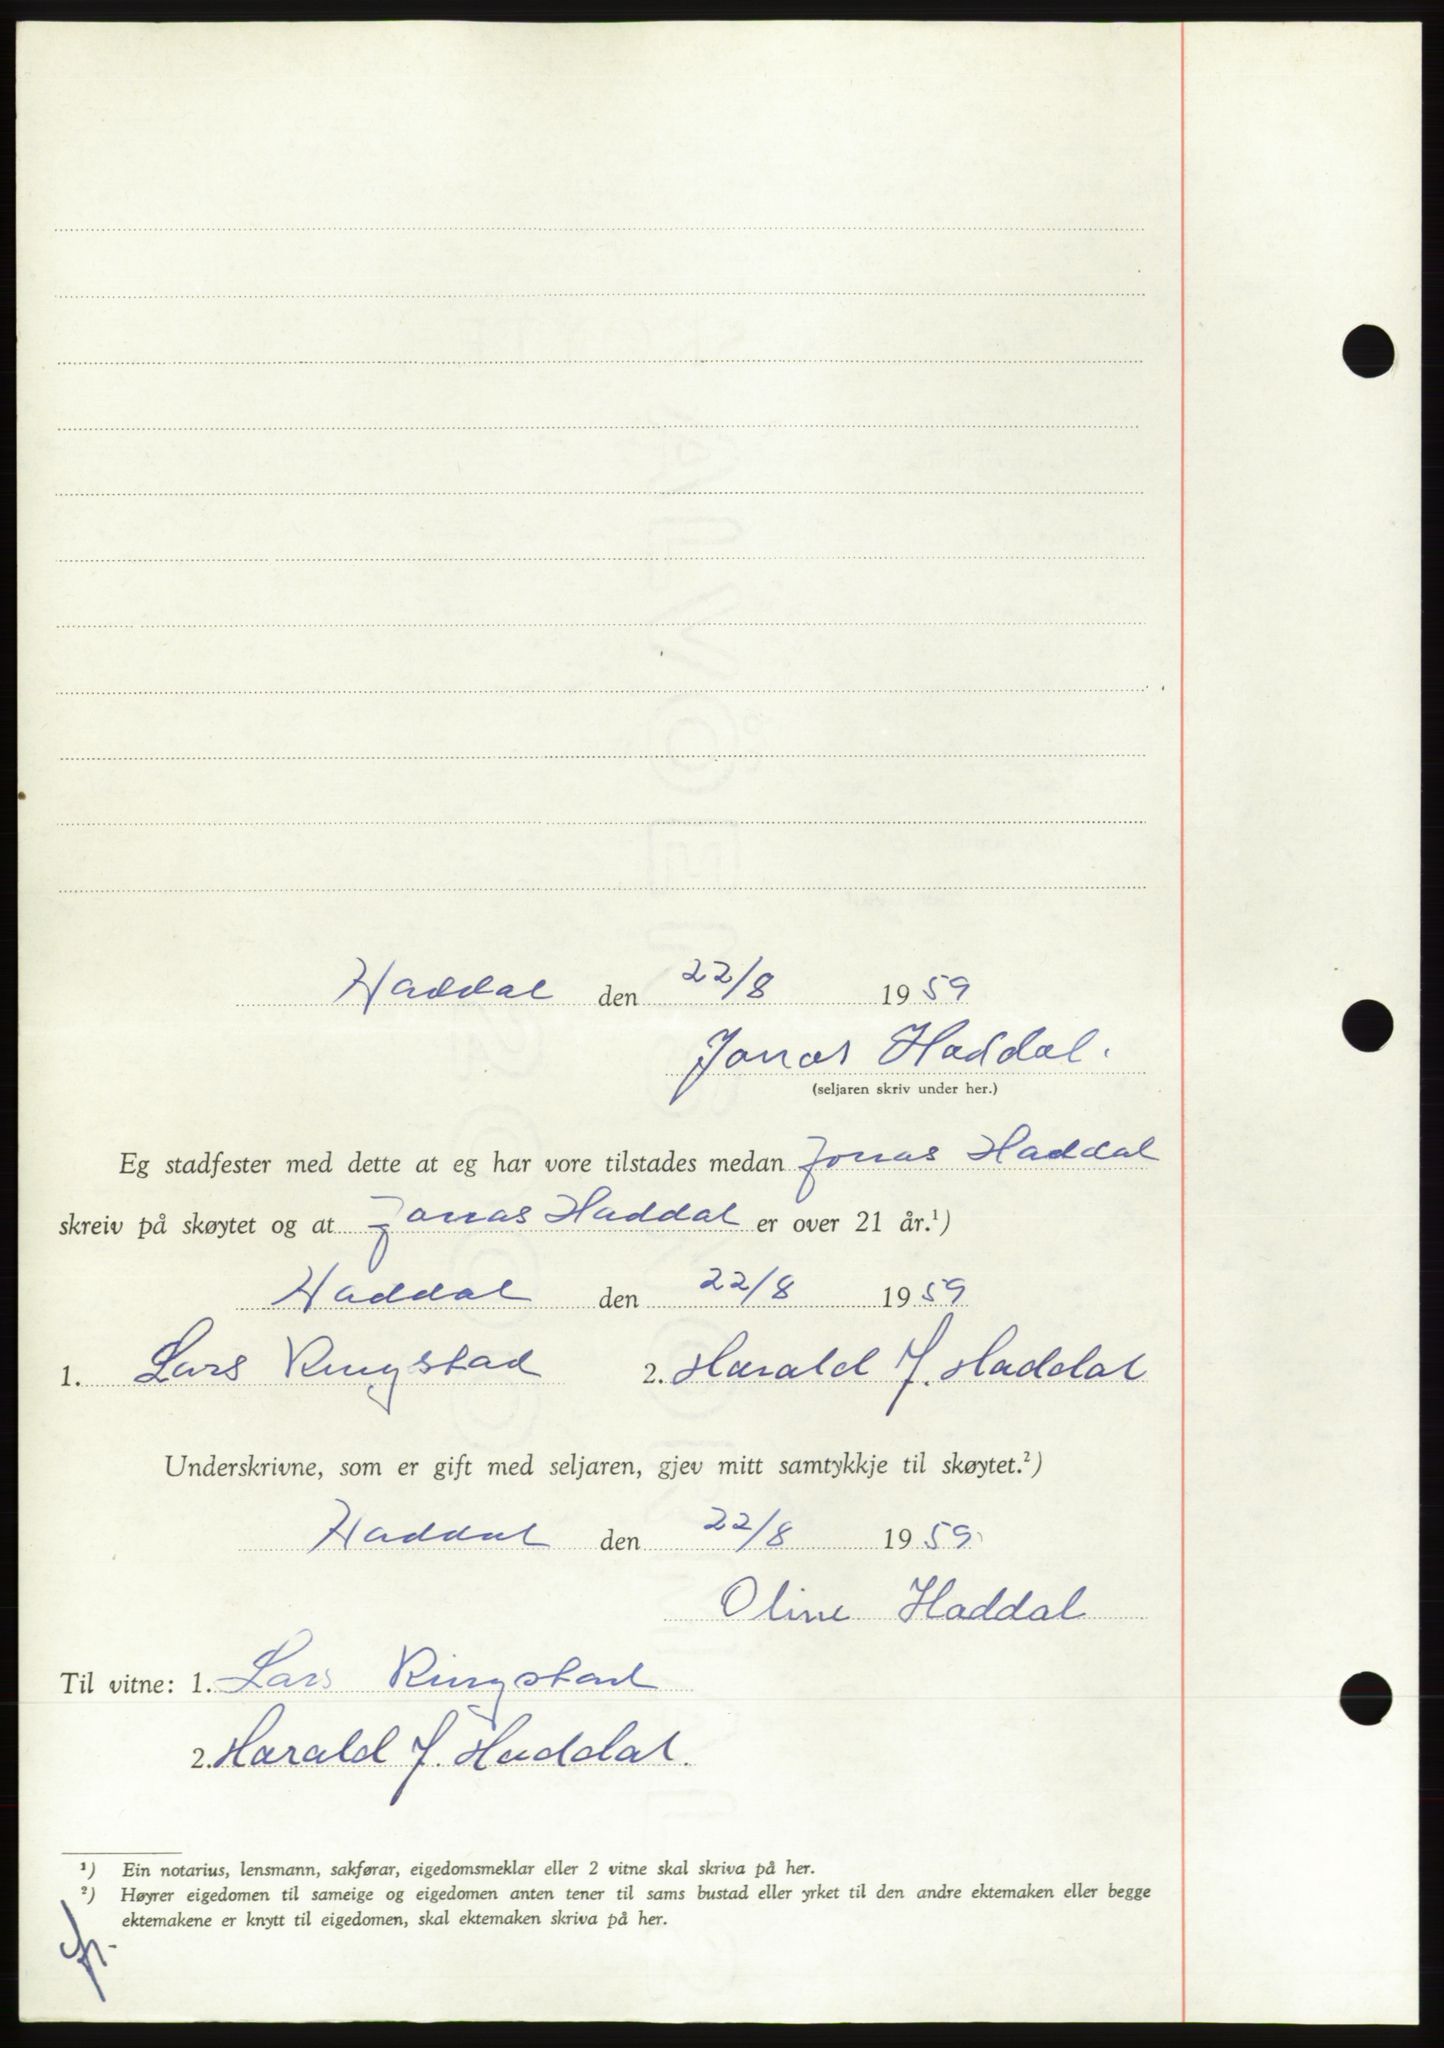 Haddal den 22/8 1959
Jonas Haddal.
(seljaren skriv under her.)
Eg stadfester med dette at eg har vore tilstades medan Jonas Haddal
skreiv på skøytet og at Jonas Haddal er over 21 år.¹)
Haddal den 22/8 1959
1. Lars Ringstad 2. Harald J. Haddal
Underskrivne, som er gift med seljaren, gjev mitt samtykkje til skøytet.²)
Haddal den 22/8 1959
Oline Haddal
Til vitne: 1. Lars Ringstad
2. Harald J. Haddal.
¹) Ein notarius, lensmann, sakførar, eigedomsmeklar eller 2 vitne skal skriva på her.
²) Høyrer eigedomen til sameige og eigedomen anten tener til sams bustad eller yrket til den andre ektemaken eller begge
ektemakene er knytt til eigedomen, skal ektemaken skriva på her.